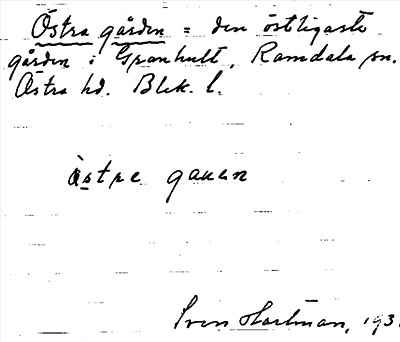 Östra gården = den östligaste
gården i Granhult, Ramdala sn.
Östra hd. Blek. l.
östre gauen
Sven Hartman, 193